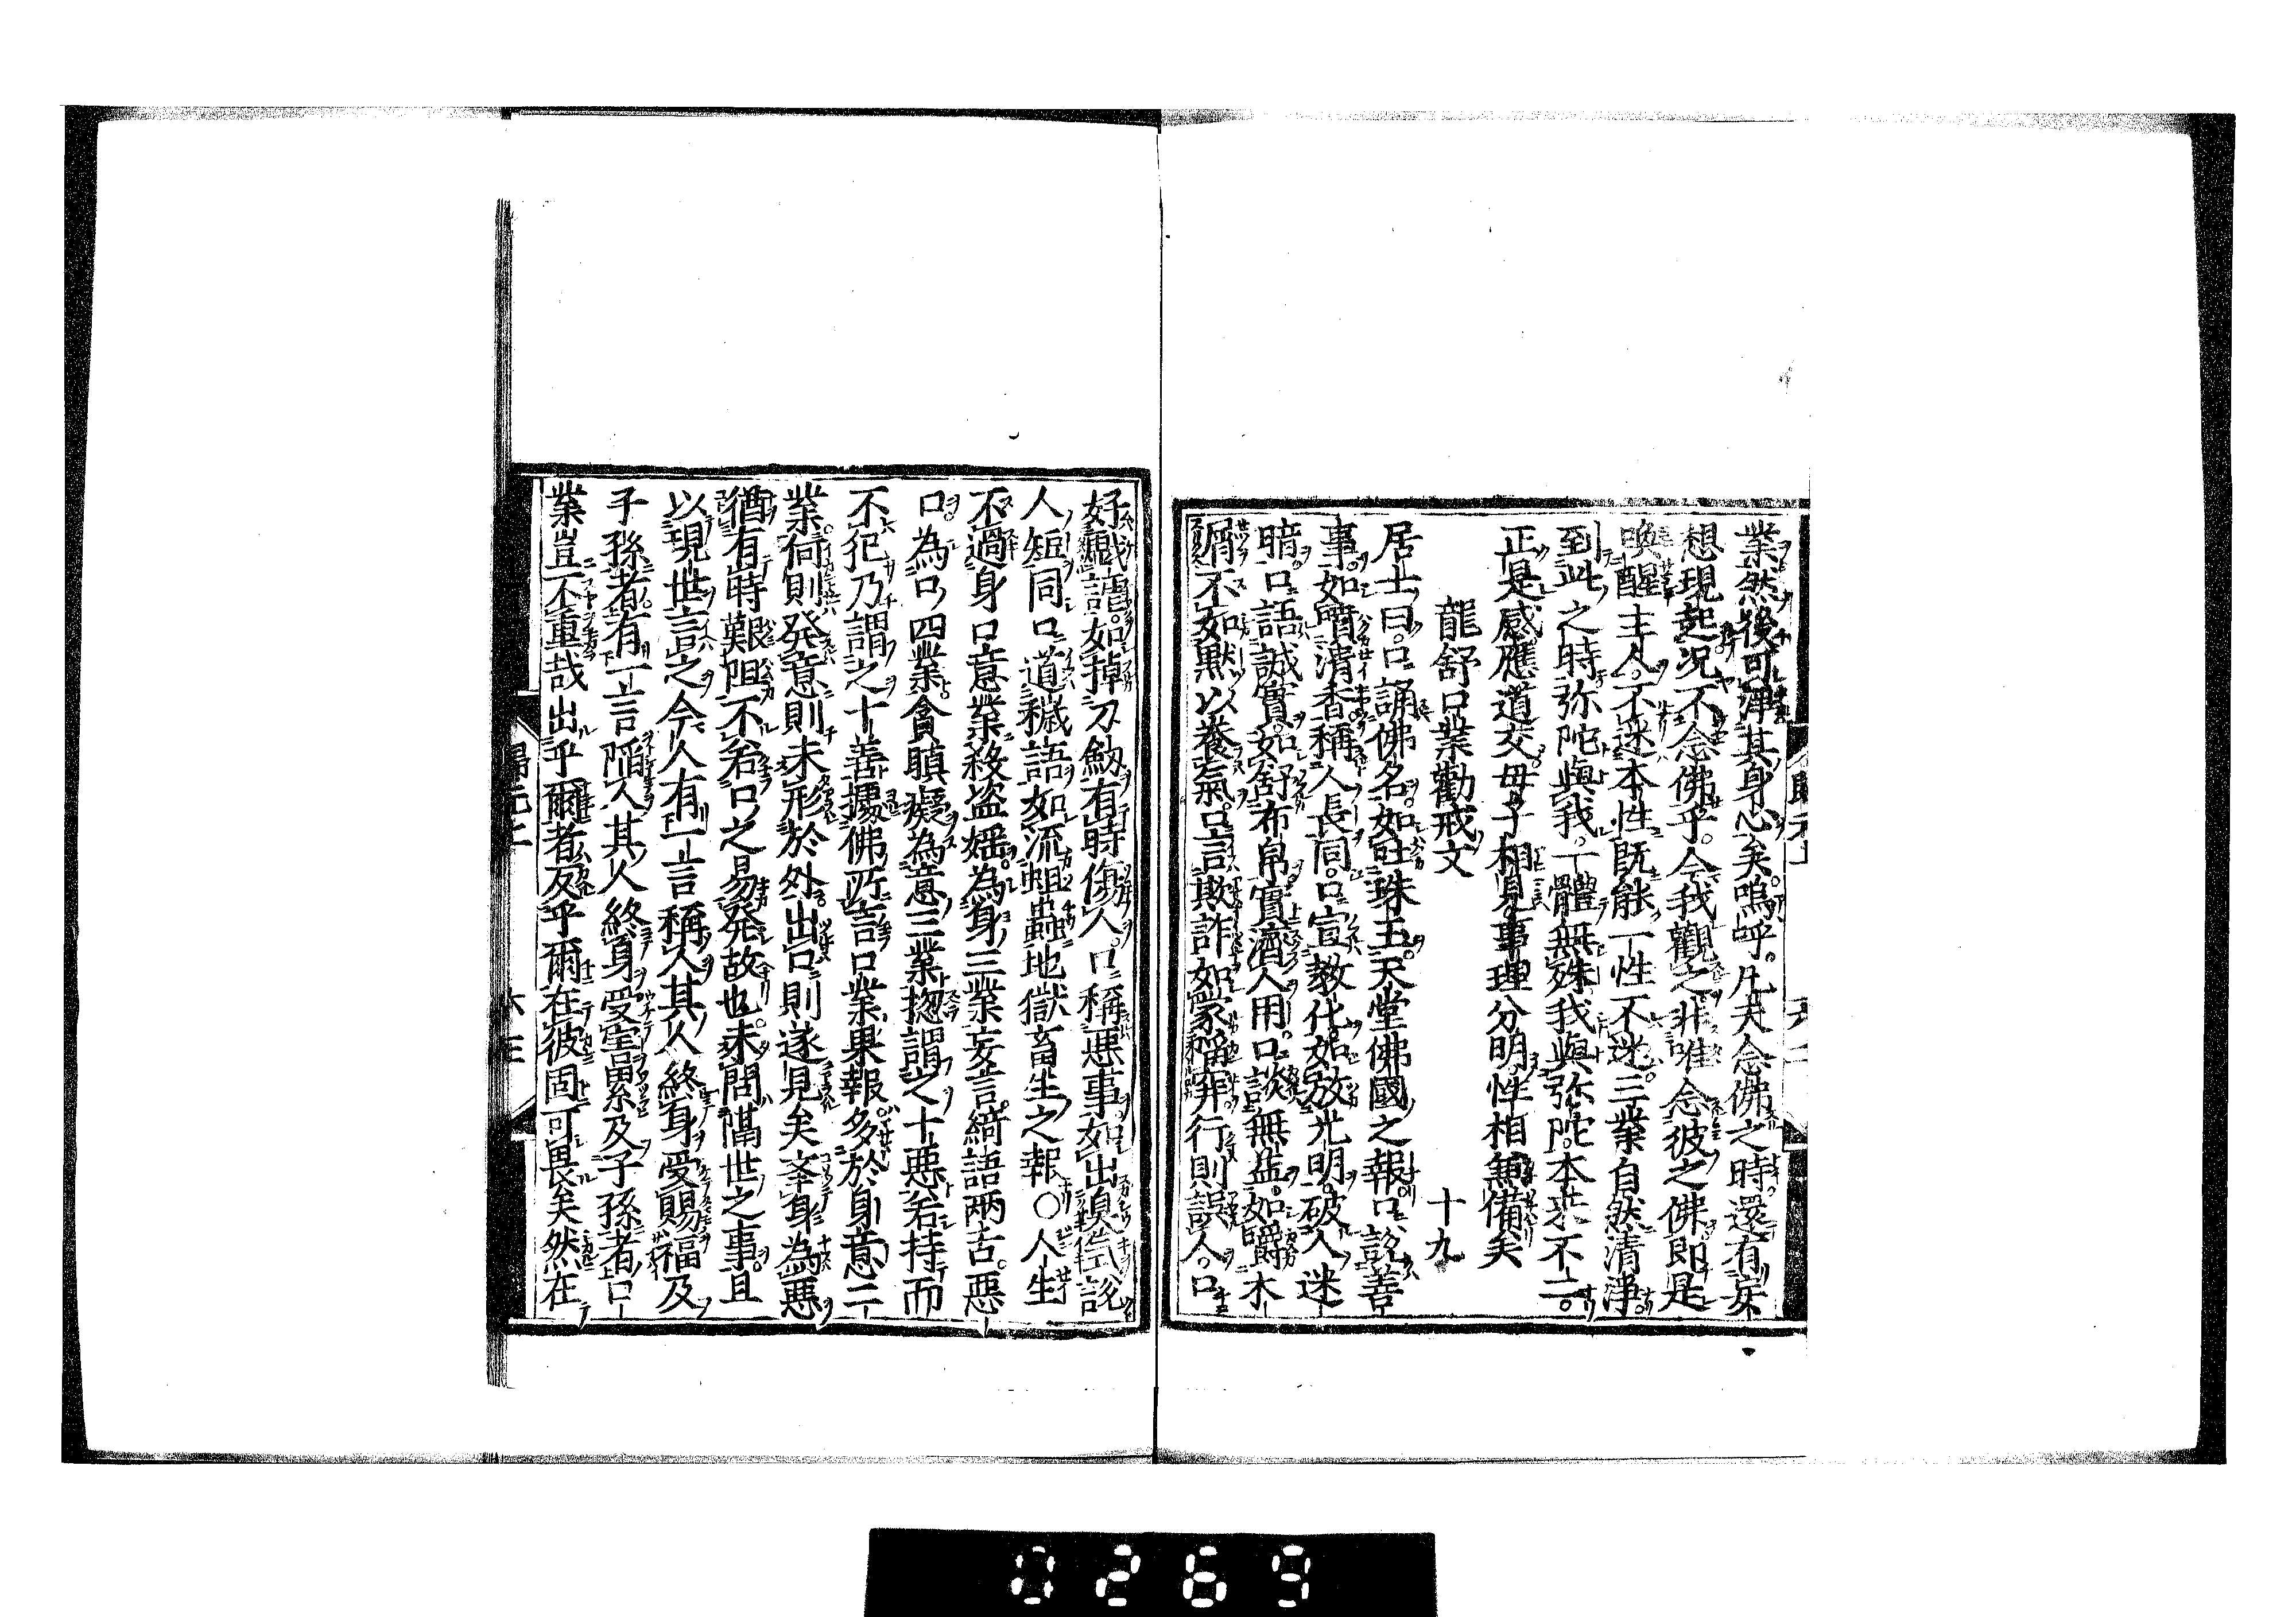 業然後可淨其身心矣嗚呼凡夫念佛之時還有妄
想現起况不念佛乎今我觀之非唯念彼之佛即是
喚醒主人不迷本性既能一性不迷三業自然清淨
到此之時弥陀與我一體無殊我與弥陀本来不二
正是感應道交母子相見事理分明性相兼備矣
龍舒口業勸戒文 十九
居士曰口誦佛名如吐珠玉天堂佛國之報口說善
事如噴清香稱人長同口宣教化如放光明破人迷
暗口語誠實如舒布帛實濟人用口談無益如嚼木
屑不如默以養氣口言欺詐如蒙稱穽行則誤人口
好戲謔如掉刀劔有時傷人口稱惡事如出臰
說
人短同口道穢語如流蛆蟲地獄畜生之報○人生
不過身口意業殺盜婬為身三業妄言綺語兩舌惡
口為口四業貪瞋癡為意三業揔謂之十惡若持而
不犯乃謂之十善據佛所言口業果報多於身意二
業何則發意則未形於外出口則遂見矣本身為惡
猶有時艱阻不若口之易發故也未問隔世之事且
以現世言之今人有一言稱人其人終身受賜福及
子孫者有一言陷人其人終身受害累及子孫者口
業豈不重哉出乎爾者反乎爾在彼固可畏矣然在
歸元上 六三
0269